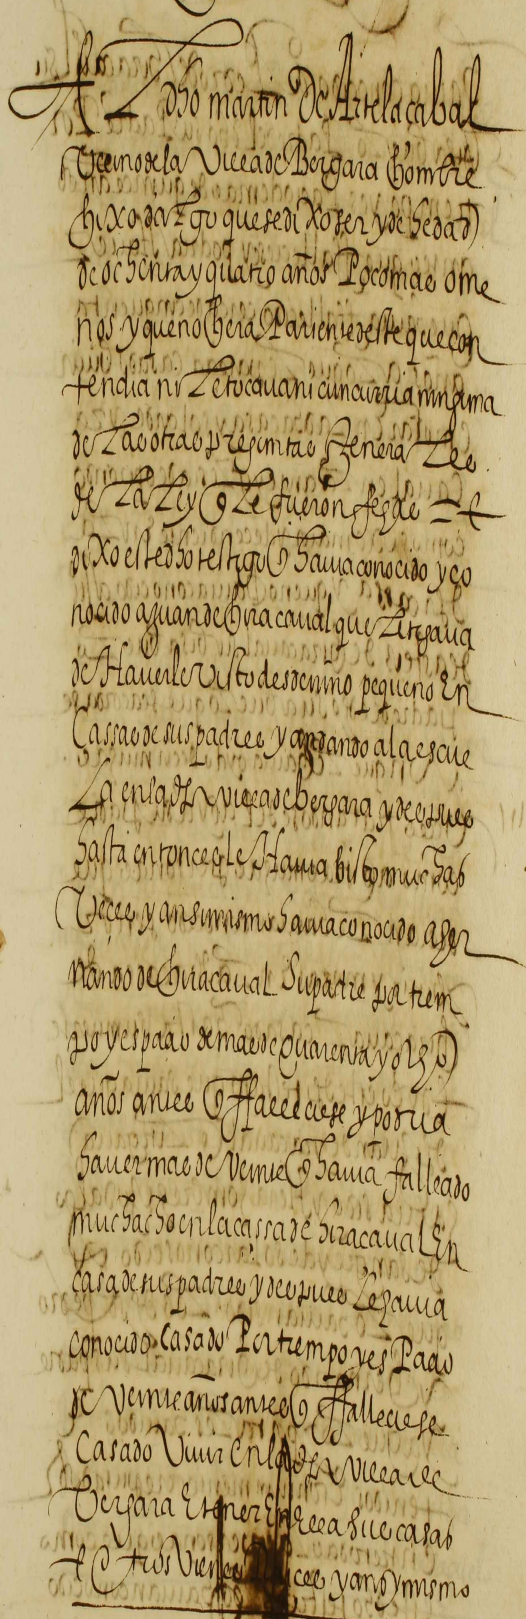 El dho martin De Artelacabal
Vecino de la Villa de Bergara hombre
hixodalgo que se dixo ser y de hedad
de ochenta y quatro años Poco mas o me
nos y que no hera Pariente deste que con
tendia ni Le tocaua ni concurria ninguna
de Las otras preguntas Generales
de La Ley q Le fueron fechas
dixo este dho testigo q hauia conocido y co
nocido a Juan de hiracaual que Litigaua
de Hauerle visto desde niño pequeño En
Cassa de sus padres y andando a la escue
La en la dha villa de bergara y despues
hasta entonces le Hauia bisto muchas
Veces y ansimismo hauia conocido a her
nando de hiracaual Su padre por tiem
po y espaçio de mas de quarenta y ocho
años antes q ffalleciese y podria
hauer mas de veinte q hauia fallecido
muchacho en la cassa de hiracaual En
casa de sus padres y despues Le hauia
conocido casado Por tiempo y es Paçio
de veinte años antes q ffalleciese
Casado Viuir En la dha villa de
Vergara E tener En ella sus casas
E otros Vienes y ansymismo